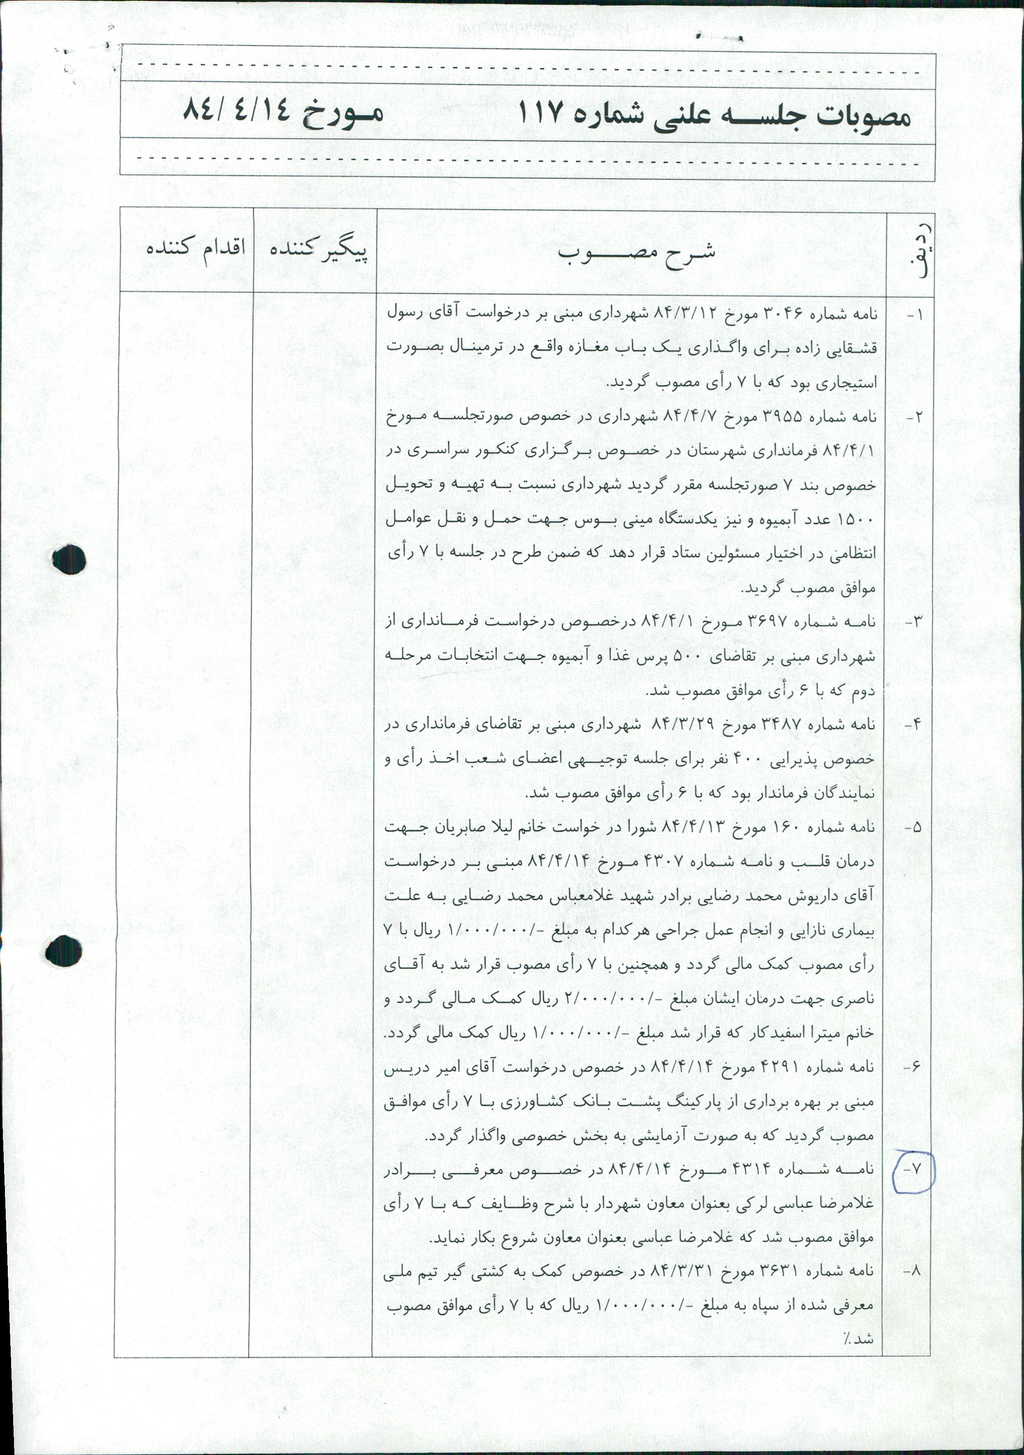 مصوبات جلسه علنی شماره ۱۱۷ مورخ ۸٤/٤/۱٤
ردیف شرح مصوب پیگیر کننده اقدام کننده
۱- نامه شماره ۳۰۴۶ مورخ ۸۴/۳/۱۲ شهرداری مبنی بر درخواست آقای رسول
قشقایی زاده برای واگذاری یک باب مغازه واقع در ترمینال بصورت
استیجاری بود که با ۷ رأی مصوب گردید.
۲- نامه شماره ۳۹۵۵ مورخ ۸۴/۴/۷ شهرداری در خصوص صورتجلسه مورخ
۸۴/۴/۱ فرمانداری شهرستان در خصوص برگزاری کنکور سراسری در
خصوص بند ۷ صورتجلسه مقرر گردید شهرداری نسبت به تهیه و تحویل
۱۵۰۰ عدد آبمیوه و نیز یکدستگاه مینی بوس جهت حمل و نقل عوامل
انتظامی در اختیار مسئولین ستاد قرار دهد که ضمن طرح در جلسه با ۷ رأی
موافق مصوب گردید.
۳- نامه شماره ۳۶۹۷ مورخ ۸۴/۴/۱ درخصوص درخواست فرمانداری از
شهرداری مبنی بر تقاضای ۵۰۰ پرس غذا و آبمیوه جهت انتخابات مرحله
دوم که با ۶ رأی موافق مصوب شد.
۴- نامه شماره ۳۴۸۷ مورخ ۸۴/۳/۲۹ شهرداری مبنی بر تقاضای فرمانداری در
خصوص پذیرایی ۴۰۰ نفر برای جلسه توجیهی اعضای شعب اخذ رأی و
نمایندگان فرماندار بود که با ۶ رأی موافق مصوب شد.
۵- نامه شماره ۱۶۰ مورخ ۸۴/۴/۱۳ شورا در خواست خانم لیلا صابریان جهت
درمان قلب و نامه شماره ۴۳۰۷ مورخ ۸۴/۴/۱۴ مبنی بر درخواست
آقای داریوش محمد رضایی برادر شهید غلامعباس محمد رضایی به علت
بیماری نازایی و انجام عمل جراحی هرکدام به مبلغ -/۱/۰۰۰/۰۰۰ ریال با ۷
رأی مصوب کمک مالی گردد و همچنین با ۷ رأی مصوب قرار شد به آقای
ناصری جهت درمان ایشان مبلغ -/۲/۰۰۰/۰۰۰ ریال کمک مالی گردد و
خانم میترا اسفیدکار که قرار شد مبلغ -/۱/۰۰۰/۰۰۰ ریال کمک مالی گردد.
۶- نامه شماره ۴۲۹۱ مورخ ۸۴/۴/۱۴ در خصوص درخواست آقای امیر دریس
مبنی بر بهره برداری از پارکینگ پشت بانک کشاورزی با ۷ رأی موافق
مصوب گردید که به صورت آزمایشی به بخش خصوصی واگذار گردد.
۷- نامه شماره ۴۳۱۴ مورخ ۸۴/۴/۱۴ در خصوص معرفی برادر
غلامرضا عباسی لرکی بعنوان معاون شهردار با شرح وظایف که با ۷ رأی
موافق مصوب شد که غلامرضا عباسی بعنوان معاون شروع بکار نماید.
۸- نامه شماره ۳۶۳۱ مورخ ۸۴/۳/۳۱ در خصوص کمک به کشتی گیر تیم ملی
معرفی شده از سپاه به مبلغ -/۱/۰۰۰/۰۰۰ ریال که با ۷ رأی موافق مصوب
شد٪